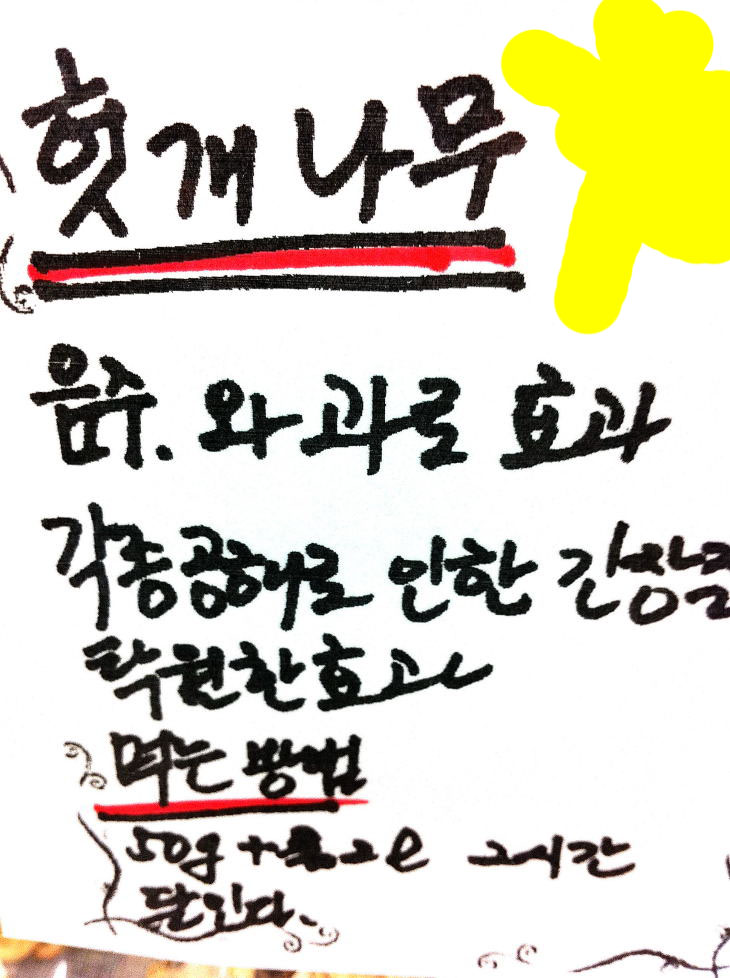 헛개나무
음주. 와 과로 효과
각종공해로 인한 간장
탁월한 효과
먹는 방법
50g + 물 2ℓ 2시간
달인다.